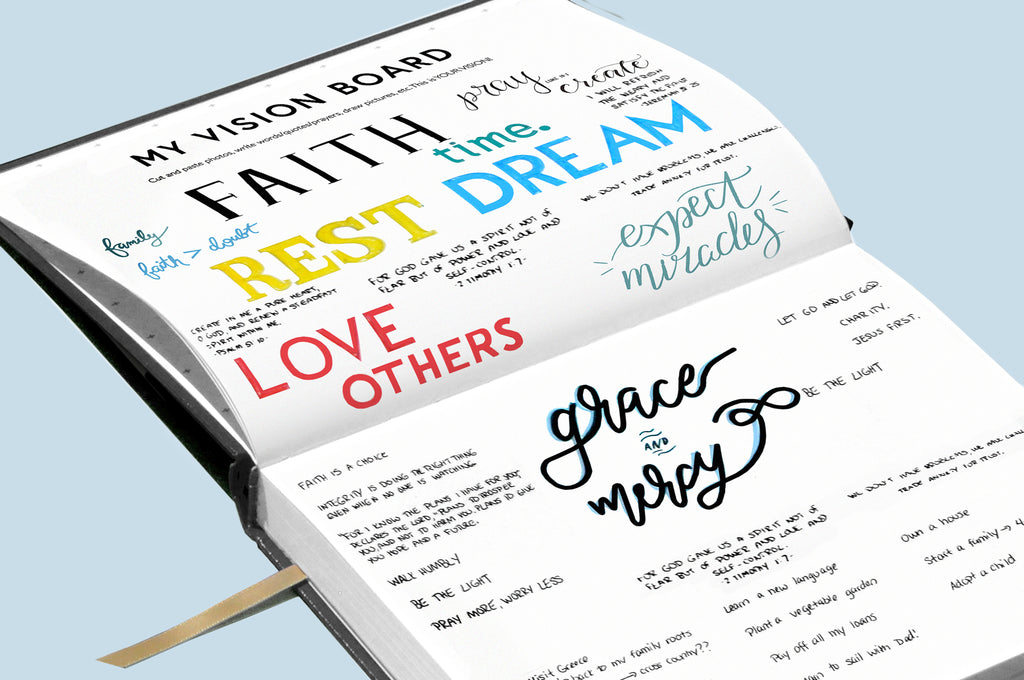 MY VISION BOARD
Cut and paste photos, write words/quotes/prayers, draw pictures, etc. This is YOUR VISION!
pray
create
I WILL REFRESH
THE WEARY AND
SATISFY THE FAINT
JEREMIAH 31:25
FAITH
time.
DREAM
WE DON'T HAVE PROBLEMS, WE HAVE CHALLENGES.
TRADE ANXIETY FOR TRUST.
family
faith > doubt
REST
FOR GOD GAVE US A SPIRIT NOT OF
FEAR BUT OF POWER AND LOVE AND
SELF-CONTROL.
- 2 TIMOTHY 1:7 -
expect
miracles
CREATE IN ME A PURE HEART,
O GOD, AND RENEW A STEADFAST
SPIRIT WITHIN ME.
- PSALM 51:10 -
LOVE
OTHERS
LET GO AND LET GOD.
CHARITY.
JESUS FIRST.
BE THE LIGHT
grace
AND
mercy
FAITH IS A CHOICE
INTEGRITY IS DOING THE RIGHT THING
EVEN WHEN NO ONE IS WATCHING
"FOR I KNOW THE PLANS I HAVE FOR YOU"
DECLARES THE LORD, "PLANS TO PROSPER
YOU AND NOT TO HARM YOU, PLANS TO GIVE
YOU HOPE AND A FUTURE.
WALK HUMBLY
BE THE LIGHT
PRAY MORE, WORRY LESS
WE DON'T HAVE PROBLEMS, WE HAVE
TRADE ANXIETY FOR TRUST.
FOR GOD GAVE US A SPIRIT NOT OF
FEAR BUT OF POWER AND LOVE AND
SELF-CONTROL.
- 2 TIMOTHY 1:7 -
Own a house
Start a family → 4
Adopt a child
Learn a new language
Plant a vegetable garden
Pay off all my loans
to sail with Dad!
Visit Greece
back to my family roots
→ cross county??